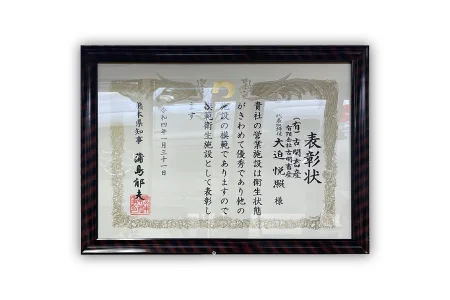 表彰状
(有)古閑畜産
有限会社古閑畜産
大迫悦照 様
貴社の営業施設は衛生状態
がきわめて優秀であり他の
施設の模範でありますので
模範衛生施設として表彰し
ます
令和四年一月三十一日
熊本県知事 蒲島郁夫